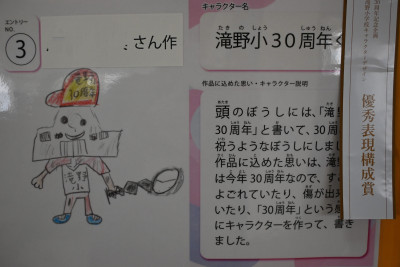 エントリー
NO.
3
さん作
キャラクター名
たき の しょう しゅう ねん
滝野小30周年く
作品に込めた思い・キャラクター説明
頭のぼうしには、「滝野
30周年」と書いて、30周
祝うようなぼうしにしまし
作品に込めた思いは、滝
は今年30周年なので、す
よごれていたり、傷が出来
いたり、「30周年」という感
にキャラクターを作って、書き
ました。
優秀表現構成賞
滝野
30周年
滝野
小